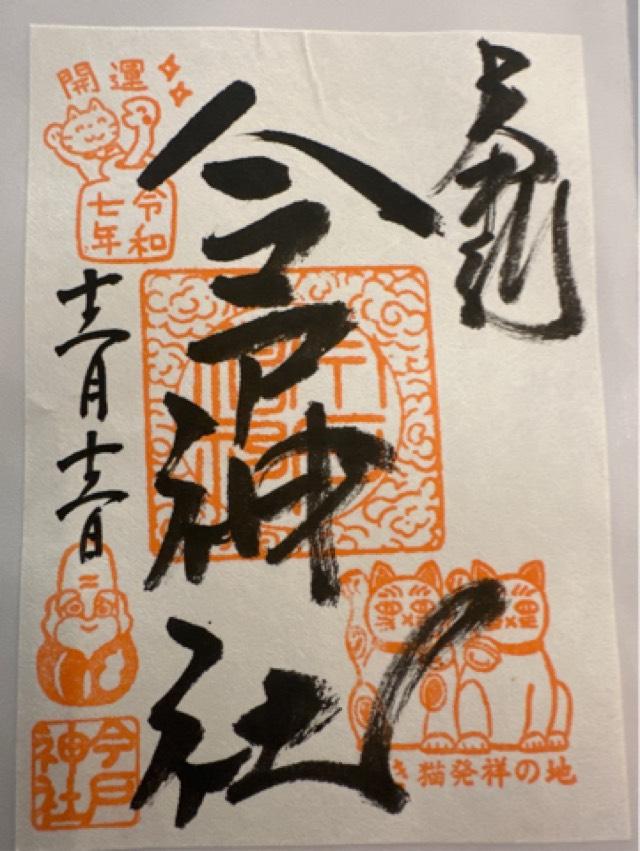 奉拝
今戸神社
開運
令和
七年
十二月
今戸
神社
き猫発祥の地